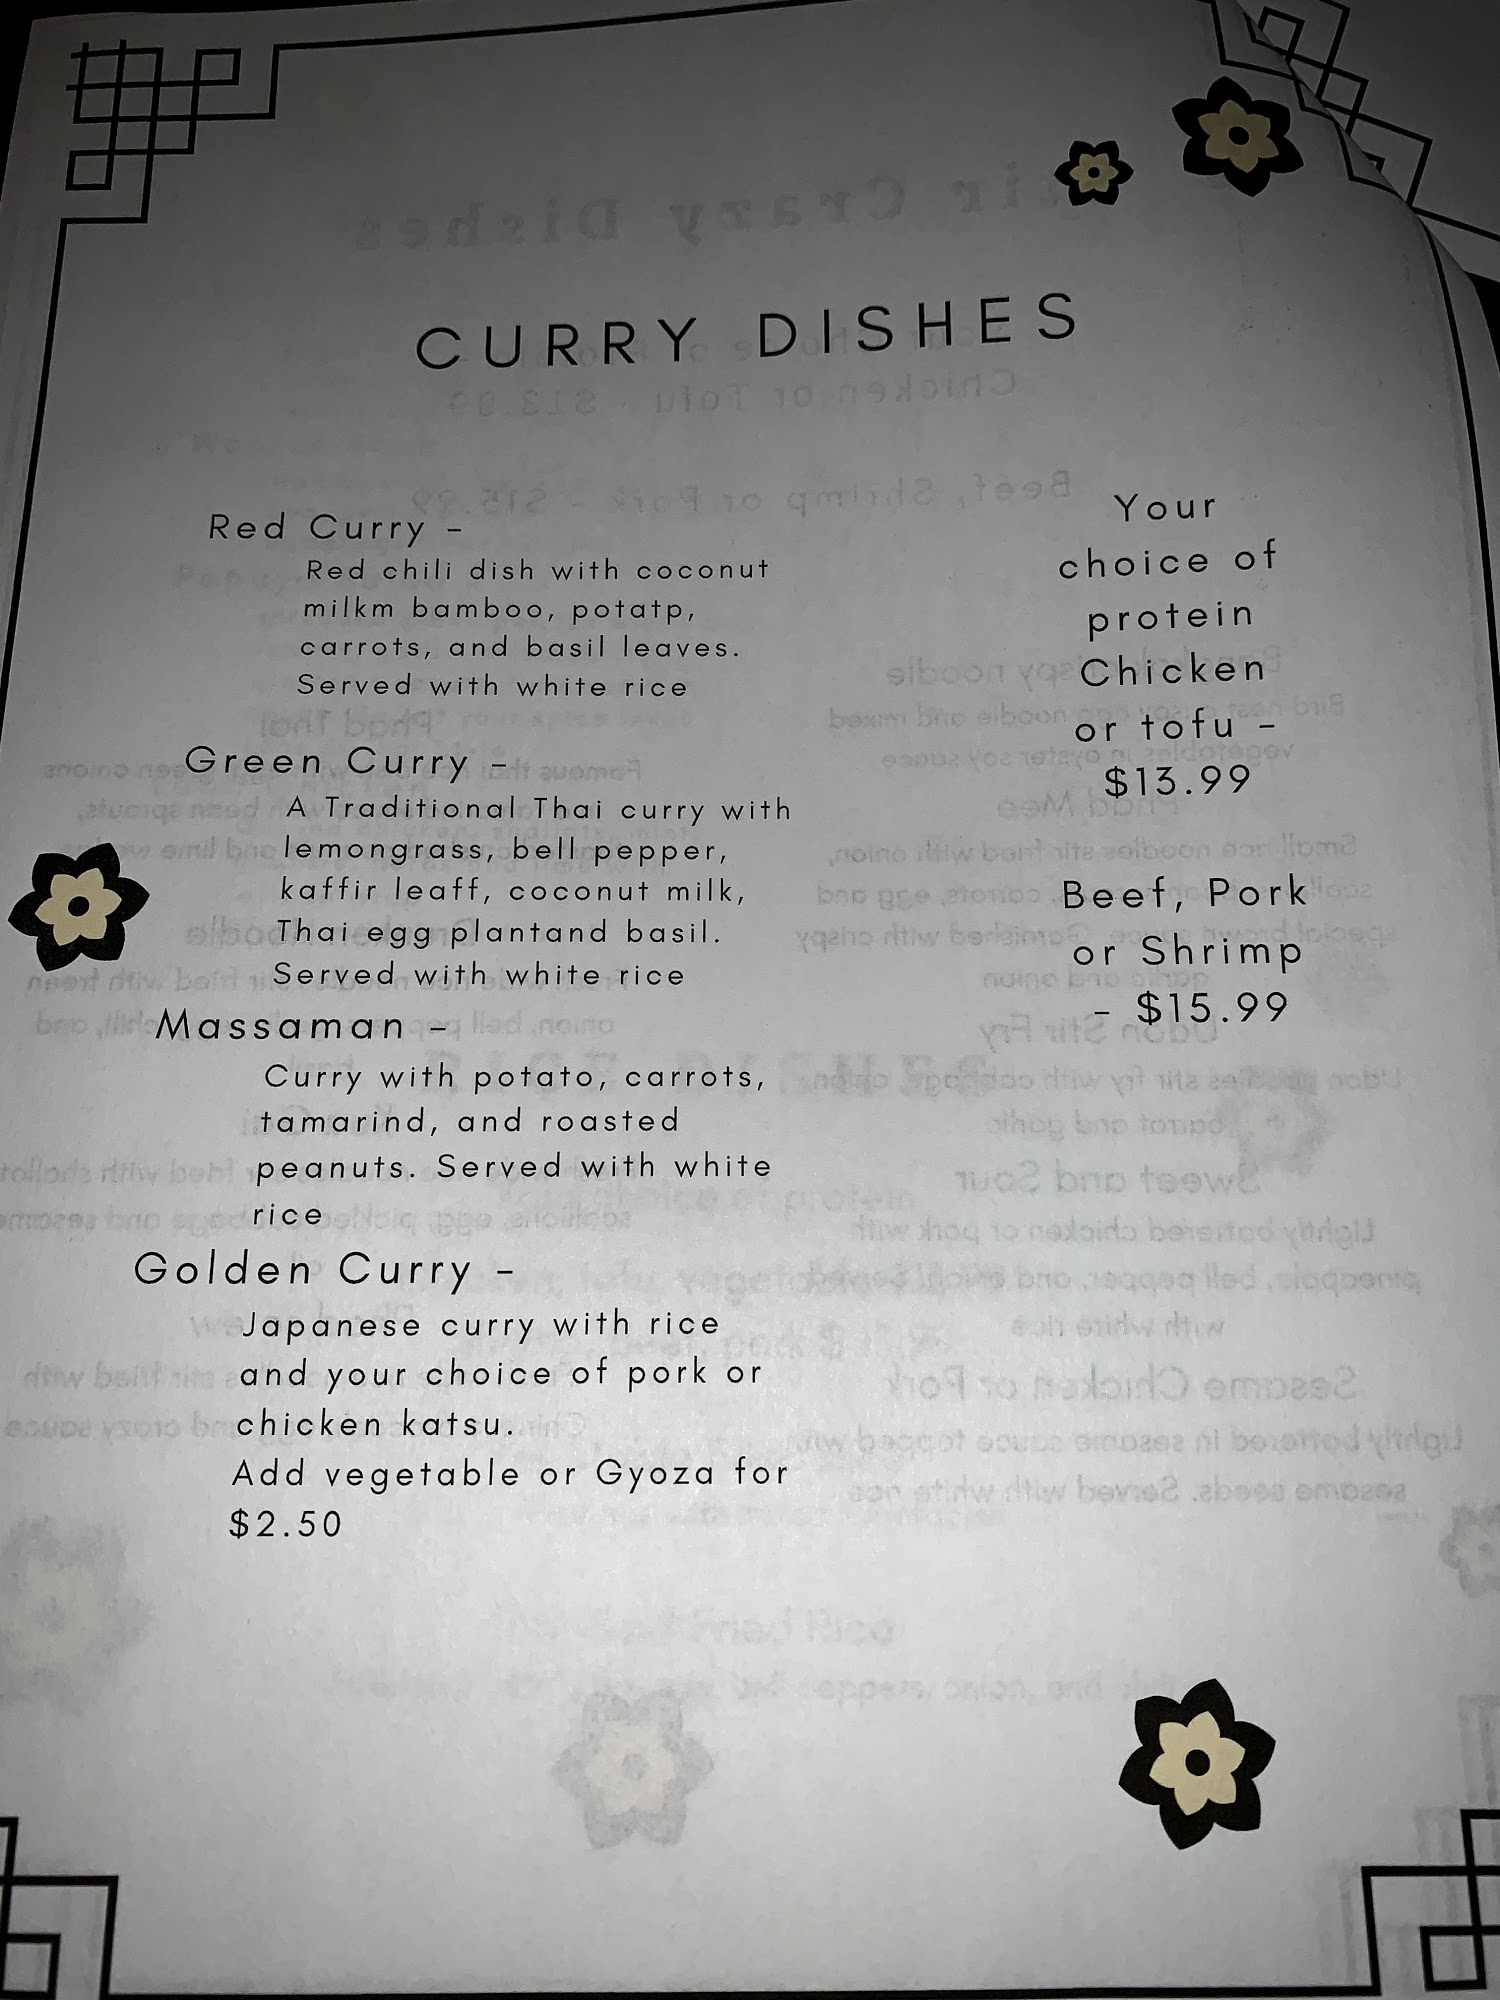 CURRY DISHES
Red Curry -
Red chili dish with coconut
milkm bamboo, potatp,
carrots, and basil leaves.
Served with white rice
Green Curry -
A Traditional Thai curry with
lemongrass, bell pepper,
kaffir leaff, coconut milk,
Thai egg plantand basil.
Served with white rice
Massaman -
Curry with potato, carrots,
tamarind, and roasted
peanuts. Served with white
rice
Golden Curry -
Japanese curry with rice
and your choice of pork or
chicken katsu.
Add vegetable or Gyoza for
$2.50
Your
choice of
protein
Chicken
or tofu -
$13.99
Beef, Pork
or Shrimp
- $15.99